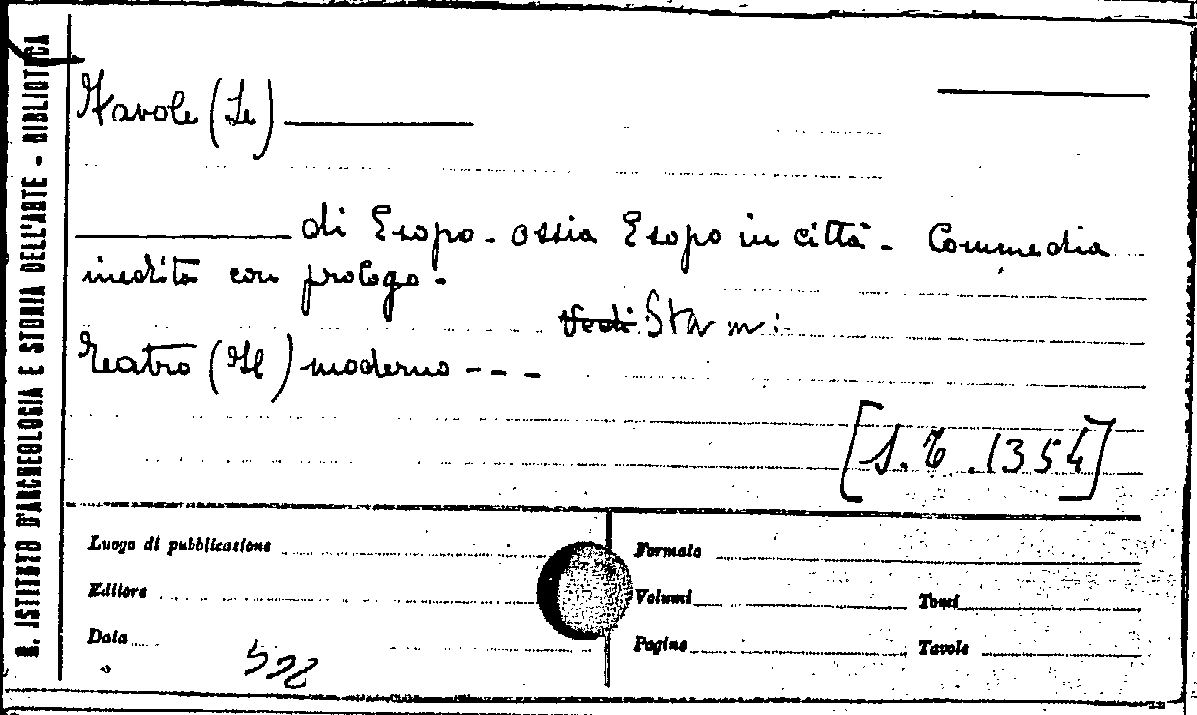 R. ISTITUTO D'ARCHEOLOGIA E STORIA DELL'ARTE - BIBLIOTECA
Favole (Le)
di Esopo - ossia Esopo in città - Commedia
inedita con prologo.
Vedi Sta in:
Teatro (Il) moderno - - -
[S. T. 1354]
Luogo di pubblicazione
Formato
Editore
Volumi Tomi
Data
Pagine Tavole